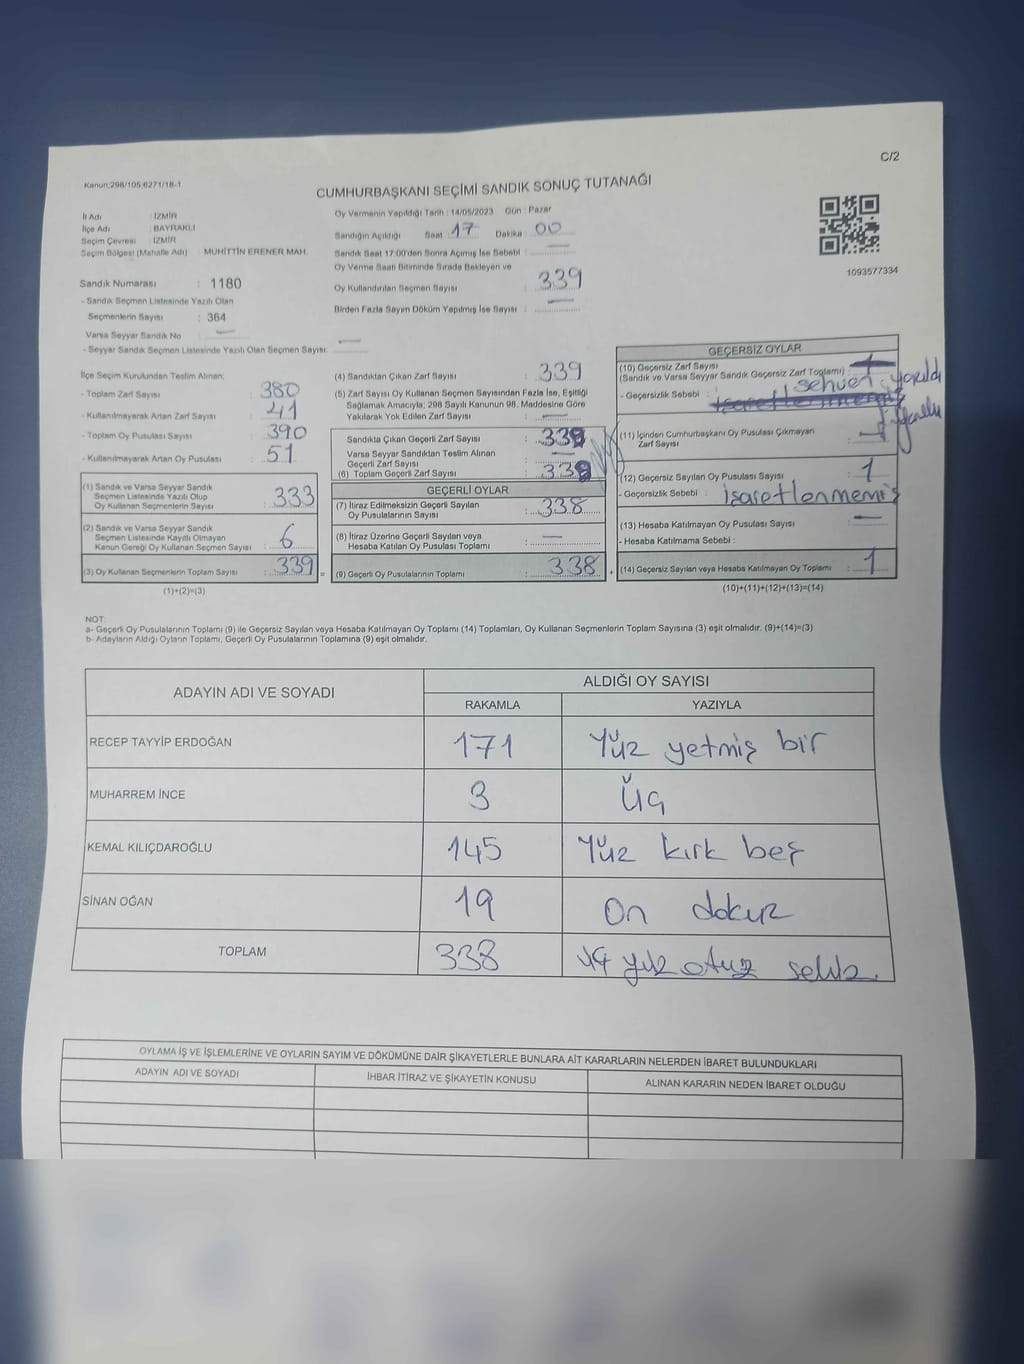 C/2
Kanun;298/105,6271/18-1
CUMHURBAŞKANI SEÇİMİ SANDIK SONUÇ TUTANAĞI
İl Adı : İZMİR
İlçe Adı : BAYRAKLI
Seçim Çevresi : İZMİR
Seçim Bölgesi (Mahalle Adı) : MUHİTTİN ERENER MAH.
Sandık Numarası : 1180
- Sandık Seçmen Listesinde Yazılı Olan
Seçmenlerin Sayısı : 364
Varsa Seyyar Sandık No : —
- Seyyar Sandık Seçmen Listesinde Yazılı Olan Seçmen Sayısı: —
Oy Vermenin Yapıldığı Tarih : 14/05/2023 Gün : Pazar
Sandığın Açıldığı Saat : 17 Dakika : 00
Sandık Saat 17:00'den Sonra Açımış İse Sebebi : —
Oy Verme Saati Bitiminde Sırada Bekleyen ve
Oy Kullandırılan Seçmen Sayısı : 339
Birden Fazla Sayım Döküm Yapılmış İse Sayısı : —
1093577334
İlçe Seçim Kurulundan Teslim Alınan;
- Toplam Zarf Sayısı : 380
- Kullanılmayarak Artan Zarf Sayısı : 41
- Toplam Oy Pusulası Sayısı : 390
- Kullanılmayarak Artan Oy Pusulası : 51
(1) Sandık ve Varsa Seyyar Sandık
Seçmen Listesinde Yazılı Olup
Oy Kullanan Seçmenlerin Sayısı : 333
(2) Sandık ve Varsa Seyyar Sandık
Seçmen Listesinde Kayıtlı Olmayan
Kanun Gereği Oy Kullanan Seçmen Sayısı : 6
(3) Oy Kullanan Seçmenlerin Toplam Sayısı : 339 =
(1)+(2)=(3)
(4) Sandıktan Çıkan Zarf Sayısı : 339
(5) Zarf Sayısı Oy Kullanan Seçmen Sayısından Fazla İse, Eşitliği
Sağlamak Amacıyla; 298 Sayılı Kanunun 98. Maddesine Göre
Yakılarak Yok Edilen Zarf Sayısı : —
Sandıkta Çıkan Geçerli Zarf Sayısı : 339
Varsa Seyyar Sandıktan Teslim Alınan
Geçerli Zarf Sayısı : —
(6) Toplam Geçerli Zarf Sayısı : 339
GEÇERLİ OYLAR
(7) İtiraz Edilmeksizin Geçerli Sayılan
Oy Pusulalarının Sayısı : 338
(8) İtiraz Üzerine Geçerli Sayılan veya
Hesaba Katılan Oy Pusulası Toplamı : —
(9) Geçerli Oy Pusulalarının Toplamı : 338 +
GEÇERSİZ OYLAR
(10) Geçersiz Zarf Sayısı
(Sandık ve Varsa Seyyar Sandık Geçersiz Zarf Toplamı) :
sehven yazıldı
- Geçersizlik Sebebi :
(11) İçinden Cumhurbaşkanı Oy Pusulası Çıkmayan
Zarf Sayısı :
(12) Geçersiz Sayılan Oy Pusulası Sayısı : 1
- Geçersizlik Sebebi : işaretlenmemiş
(13) Hesaba Katılmayan Oy Pusulası Sayısı : —
- Hesaba Katılmama Sebebi :
(14) Geçersiz Sayılan veya Hesaba Katılmayan Oy Toplamı : 1
(10)+(11)+(12)+(13)=(14)
NOT:
a- Geçerli Oy Pusulalarının Toplamı (9) ile Geçersiz Sayılan veya Hesaba Katılmayan Oy Toplamı (14) Toplamları, Oy Kullanan Seçmenlerin Toplam Sayısına (3) eşit olmalıdır. (9)+(14)=(3)
b- Adayların Aldığı Oyların Toplamı, Geçerli Oy Pusulalarının Toplamına (9) eşit olmalıdır.
ADAYIN ADI VE SOYADI ALDIĞI OY SAYISI
RAKAMLA YAZIYLA
RECEP TAYYİP ERDOĞAN 171 Yüz yetmiş bir
MUHARREM İNCE 3 Üç
KEMAL KILIÇDAROĞLU 145 Yüz kırk beş
SİNAN OĞAN 19 On dokuz
TOPLAM 338 üç yüz otuz sekiz
OYLAMA İŞ VE İŞLEMLERİNE VE OYLARIN SAYIM VE DÖKÜMÜNE DAİR ŞİKAYETLERLE BUNLARA AİT KARARLARIN NELERDEN İBARET BULUNDUKLARI
ADAYIN ADI VE SOYADI İHBAR İTİRAZ VE ŞİKAYETİN KONUSU ALINAN KARARIN NEDEN İBARET OLDUĞU